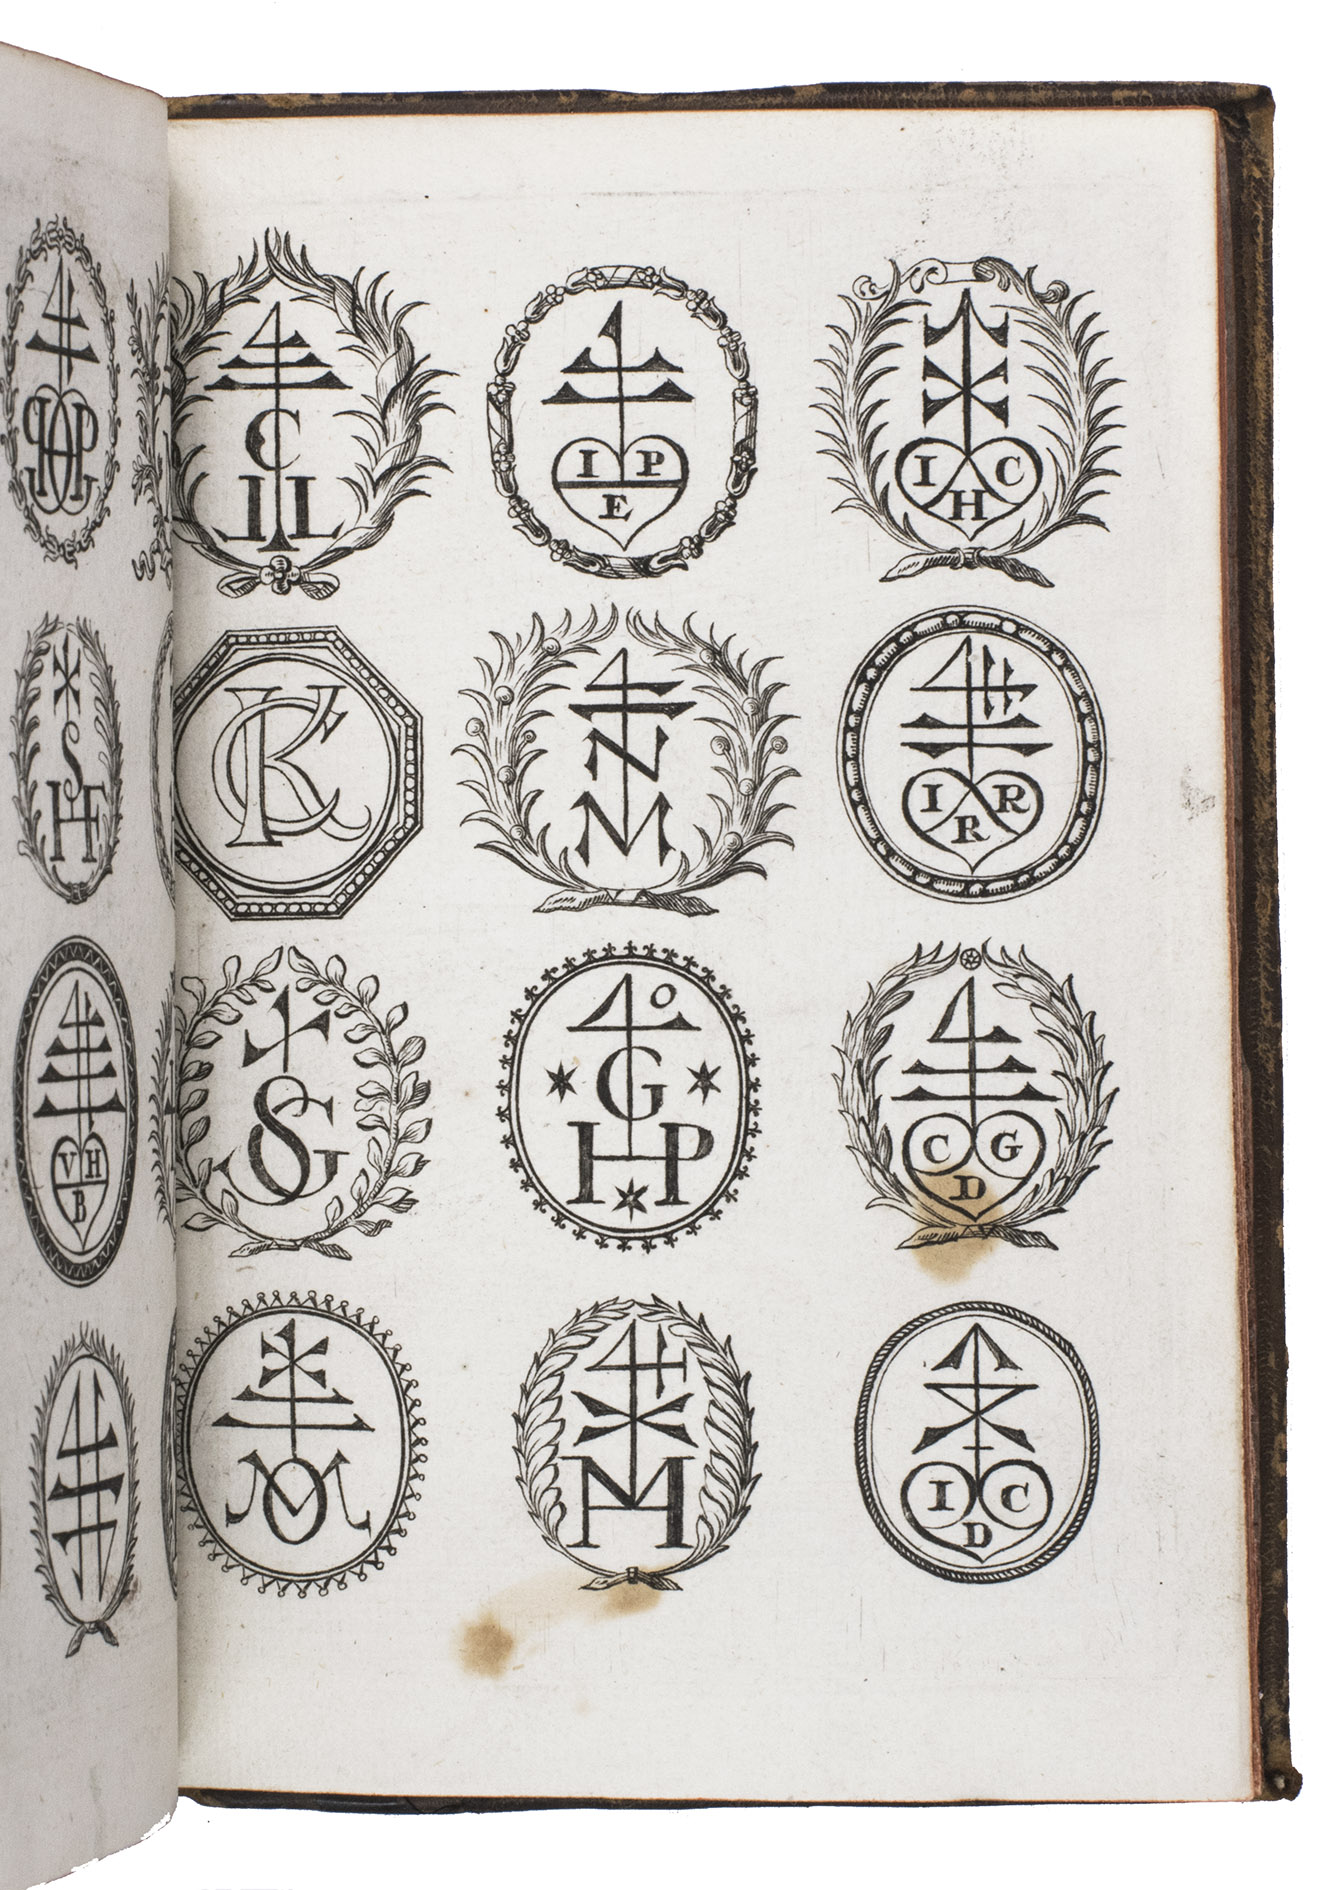 C
I P
E
I C
H
K C
N
M
I R
R
S G
G
H P
C G
D
M
M
I C
D
S
H F
V H
B